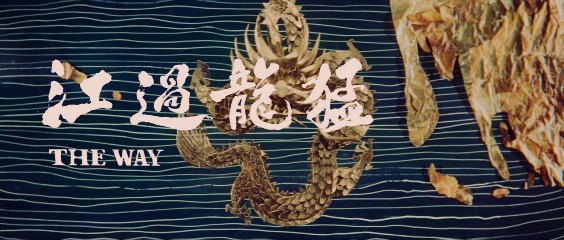 猛龍過江
THE WAY